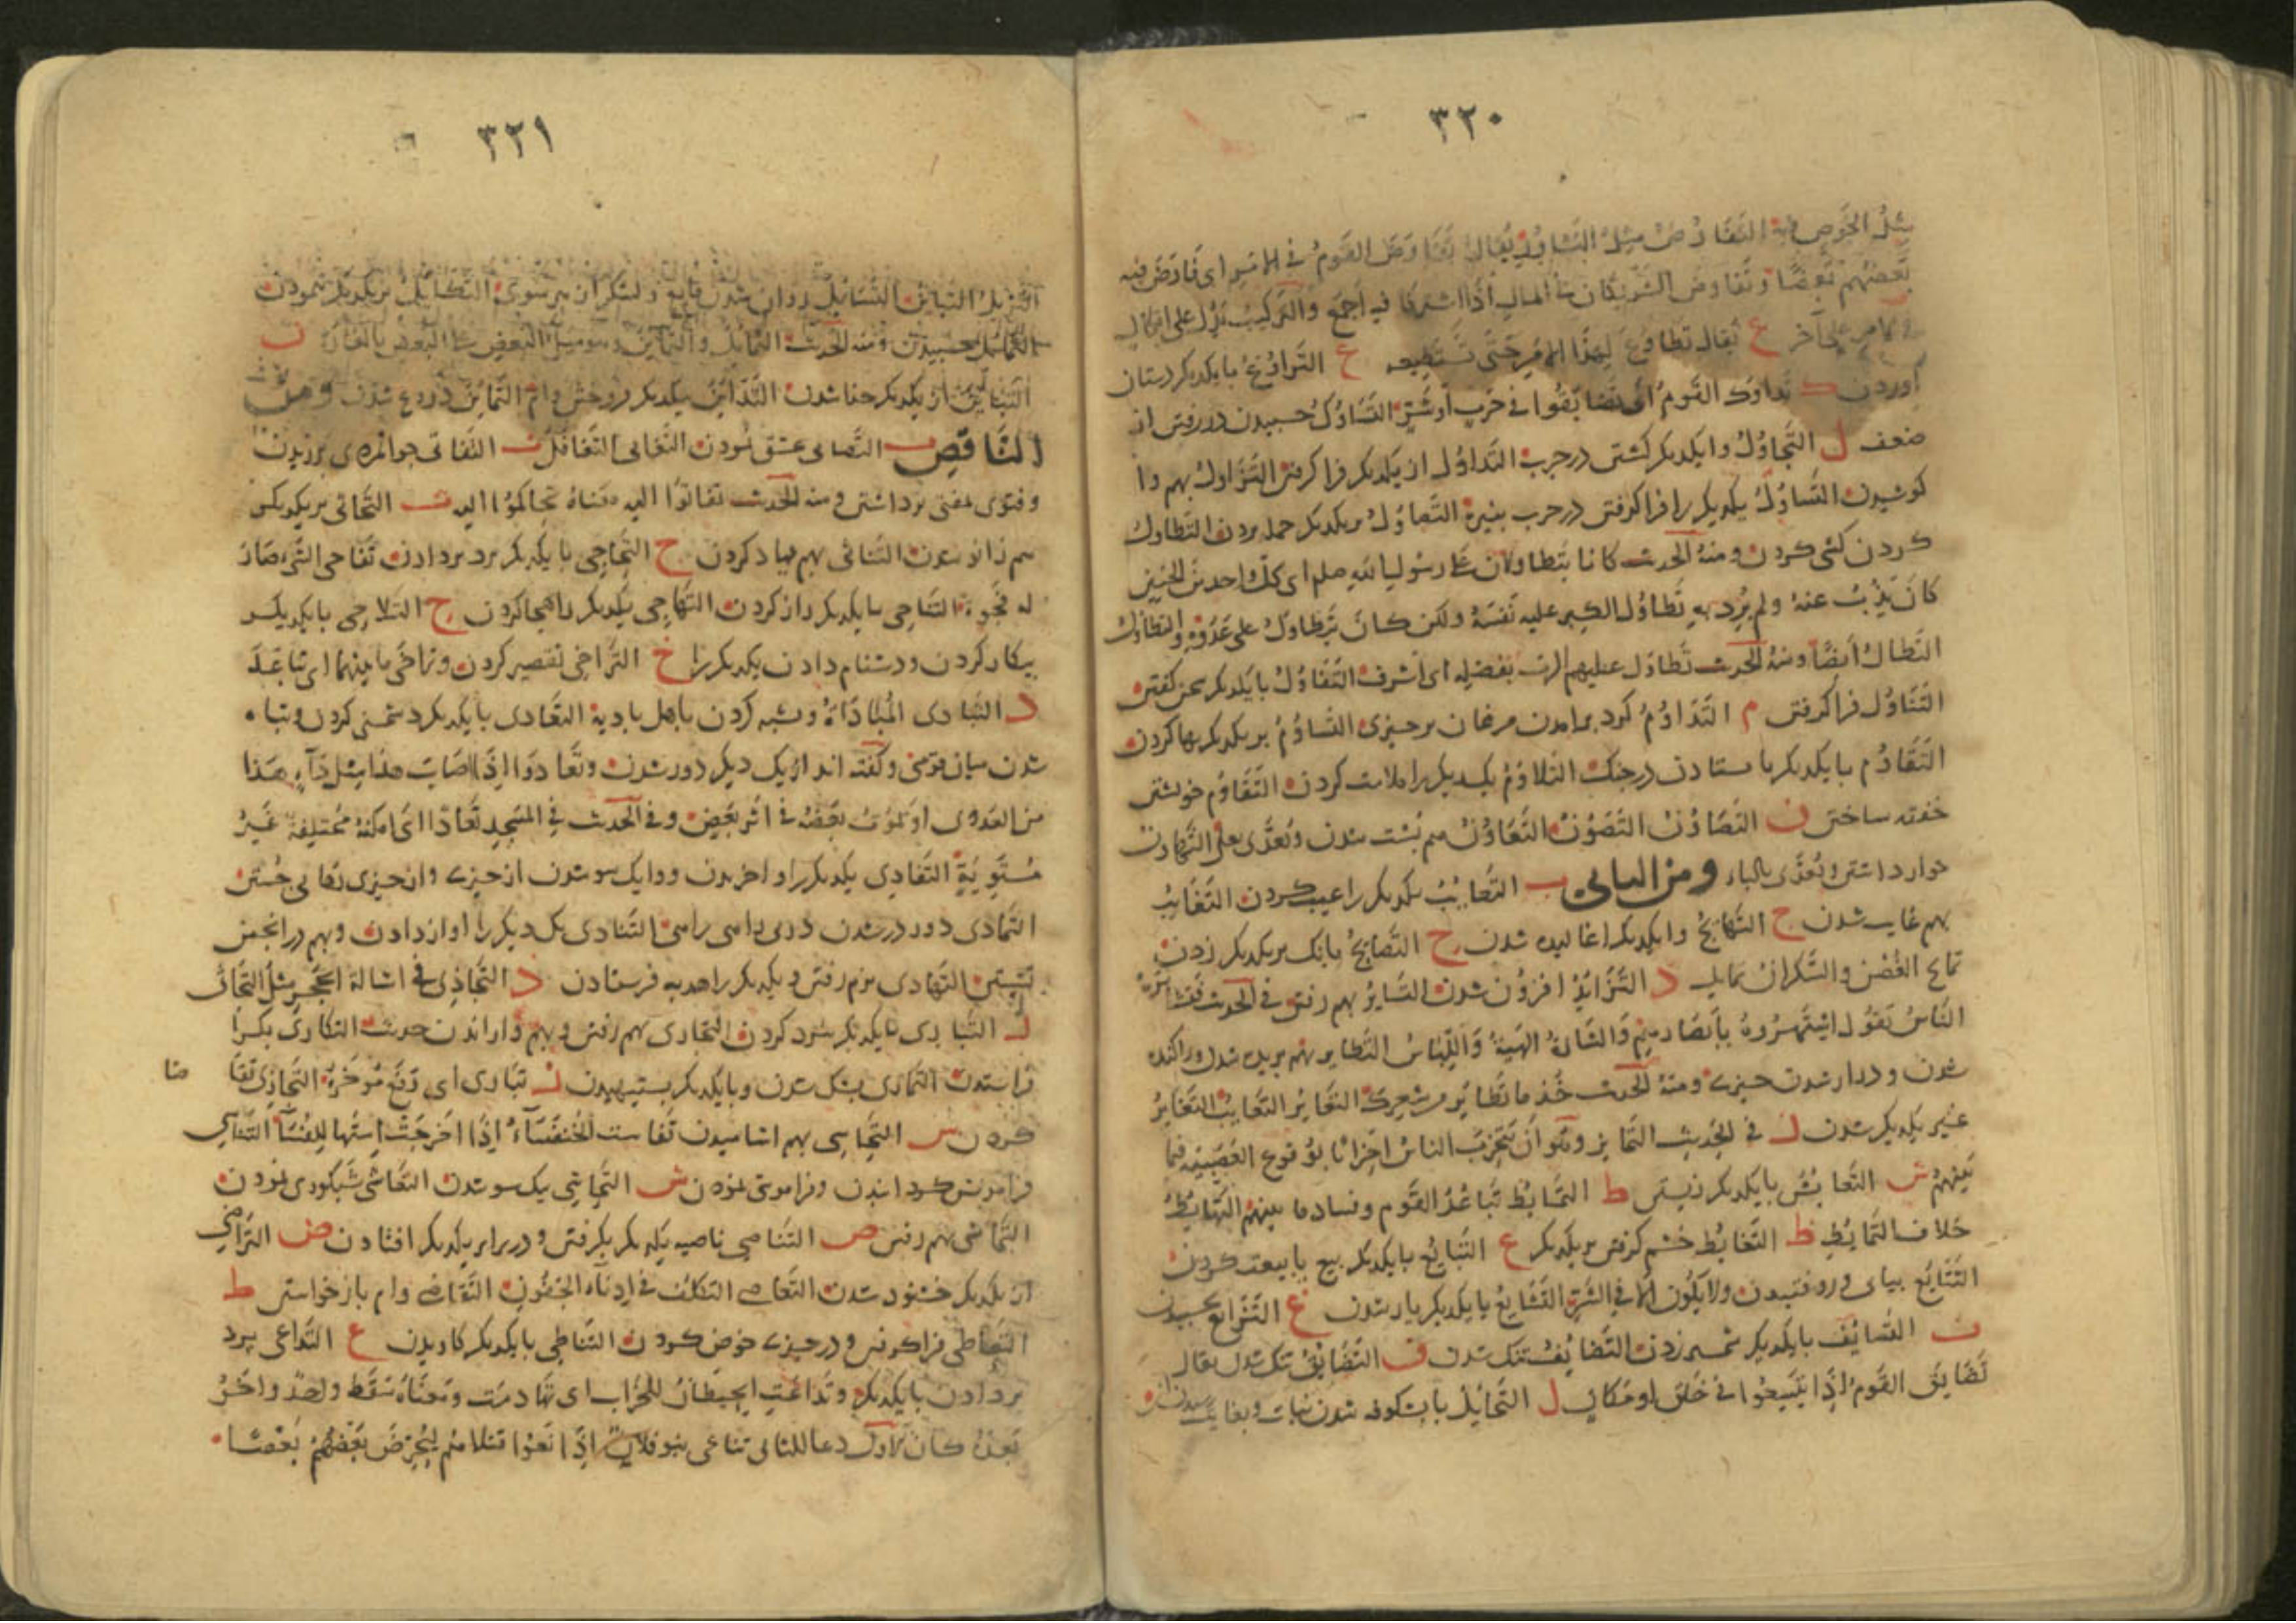 ٣٢٠
مثل الخوص التفاوض مثل التشاور يقال تفاوض القوم في الامر اى فاوض فيه
بعضهم بعضا وتفاوض الشريكان في المال اذا اشتركا فيه اجمع والتركيب يدل على اتكال
على آخر ع يقال تطاوع لهذا الامر حتى تستطيعه غ التراوغ با يكديكر دستان
آوردن ك تداوك القوم اى تضايقوا في حرب او شر التساوك جسبيدن در رفتن از
ضعف ل التجاول وا يكديكر كشتن در حرب التداول از يكديكر فرا كرفتن التزاول بهم وا
كوشيدن التساول يكديكر را فرا كرفتن در حرب بنيزه التصاول بر يكديكر حمله بردن التطاول
كردن كشى كردن ومنه الحديث كانا يتطاولان على رسول الله صلعم اى كل واحد من الحيين
كان يذب عنه ولم يرد به تطاول الكبر عليه نفسه ولكن كان تطاول على عدوه والتطاول
التطال ايضا ومنه الحديث تطاول عليهم الرب بفضله اى اشرف التقاول با يكديكر سخن كفتن
التناول فرا كرفتن م التداوم كرد برامدن مرغان بر چيزى التساوم بر يكديكر بها كردن
التقاوم با يكديكر با ستادن در جنك التلاوم يكديكر را ملامت كردن التناوم خويشتن
خفته ساختن ن التصاون التصون التعاون هم پشت شدن ويعدى بعلى التهاون
خوار داشتن ويعدى بالباء ومن اليائى ب التعايب يكديكر را عيب كردن التغايب
بهم غايب شدن ج التهايج وا يكديكر اغاليده شدن ح التصايح بانك بر يكديكر زدن
تمايح الغصن والسكران تمايل د التزايد افزون شدن التساير بهم رفتن في الحديث
الناس تقول اشتهروه بابصارهم والشارة الهيئة واللباس التطاير بهم بريده شدن وپراكنده
شدن ودراز شدن چيزى ومنه الحديث خذ ما تطاير من شعرك التعاير التعايب التغاير
غير يكديكر شدن ز في الحديث التمايز وهو ان يتحزب الناس احزابا بوقوع العصبية فيما
بينهم ش التعايش با يكديكر زيستن ط التمايط تباعد القوم وفساد ما بينهم التهايط
خلاف التمايط ظ التغايظ خشم كرفتن بر يكديكر ع التبايع با يكديكر بيع يا بيعت كردن
التتايع بياى در رو فتيدن ولا يكون الا في الشر التشايع با يكديكر يار شدن غ التزايغ جسبيدن
ف التسايف با يكديكر شمشير زدن التضايف تنك شدن ق التضايق تنك شدن يقال
تضايق القوم اذا لم يتسعوا في خلق او مكان ل التخايل با شكوفه شدن نبات
٣٢١
التزيل التباين التسايل روان شدن
التمايل جسبيدن ومنه الحديث التمايل والتمايز وهو ميل البعض على البعض بالغارة ن
التباين از يكديكر جدا شدن التداين بيكديكر فروختن وام التماين دروغ شدن ومن
الناقص ب التصابى عشق نمودن التغابى التغافل ت التفاتى جوانمردى برزيدن
وفتوى بمفتى برداشتن ومنه الحديث تفاتوا اليه معناه تحاكموا اليه ث التجاثى بر يكديكر
بهم زانو شدن التناثى بهم ياد كردن ج التحاجى با يكديكر برد بردادن تفاجى الشئ صار
له فجوة التناجى با يكديكر راز كردن التهاجى يكديكر را هجا كردن ح التلاحى با يكديكر
پيكار كردن ودشنام دادن يكديكر را خ التراخى تقصير كردن وتراخى ما بينهما اى تباعد
د التبادى المباداة وشبه كردن باهل باديه التعادى با يكديكر دشمنى كردن وتباه
شدن ميان قومى وكفته اند از يك ديكر دور شدن وتعادوا اذا اصاب هذا مثل داء هذا
من العدوى او لموت بعضه في اثر بعض وفي الحديث في المسجد تعاد اى امكنة مختلفة غير
مستوية التفادى يكديكر را وا خريدن ووا يك سو شدن از چيزى واز چيزى نهانى جستن
التمادى دور در شدن در بى راهى التنادى يك ديكر را آواز دادن وبهم در انجمن
نشستن التهادى بزم رفتن ويكديكر را هديه فرستادن ذ التجاذى في اشالة الحجر مثل التجاثى
ر التبارى با يكديكر نبرد كردن التجارى بهم رفتن وبهم وا راندن حديث التكارى بكرا
فرا ستدن التمارى بشك شدن وبا يكديكر بستيهيدن ز تبازى اى رفع مؤخره التجازى تقا
ضا
كردن س التحاسى بهم اشاميدن تفاست الخنفساء اذا اخرجت استها للفساء التناسى
فراموش كردانيدن وفراموشى نمودن ش التحاشى يك سو شدن التعاشى شبكورى نمودن
التماشى بهم رفتن ص التناصى ناصيه يكديكر بكرفتن ودر برابر يكديكر افتادن ض التراضى
از يكديكر خشنود شدن التغاضى التكلف في ادناء الجفون التقاضى وام باز خواستن ط
التعاطى فرا كرفتن ودر چيزى خوض كردن التناطى با يكديكر كاويدن ع التداعى برد
بردادن با يكديكر وتداعت الحيطان للخراب اى تهادمت ومعناه سقط واحد واخر
بعده كان الاول دعا للثانى تناعى بنو فلان اذا نعوا قتلاهم ليحرض بعضهم بعضا